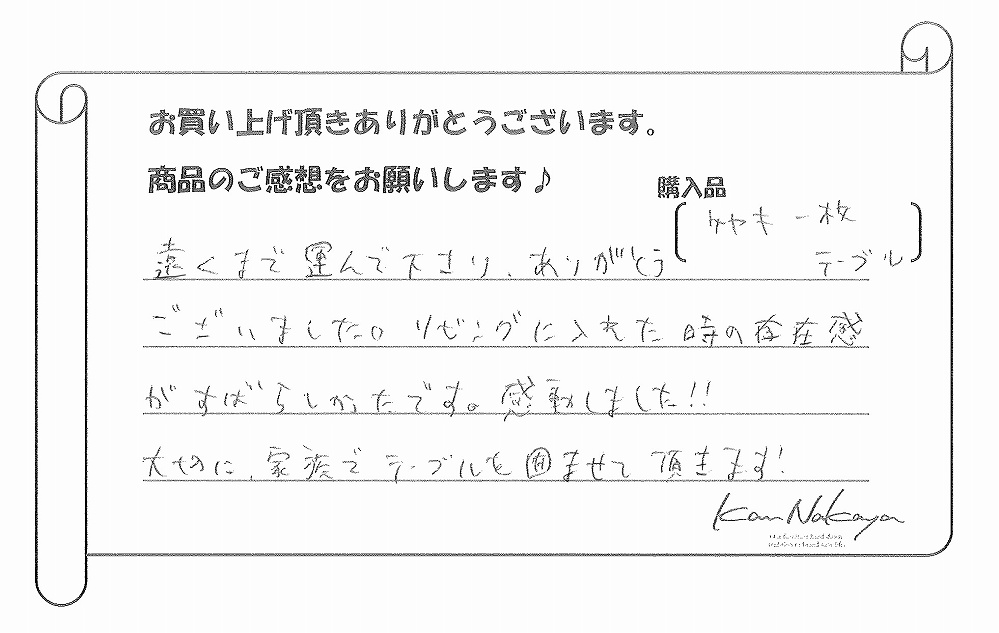 お買い上げ頂きありがとうございます。
商品のご感想をお願いします♪
購入品
ケヤキ一枚
テーブル
遠くまで運んで下さり、ありがとう
ございました。リビングに入れた時の存在感
がすばらしかったです。感動しました!!
大切に、家族でテーブルを囲ませて頂きます!
Kan Nakaya